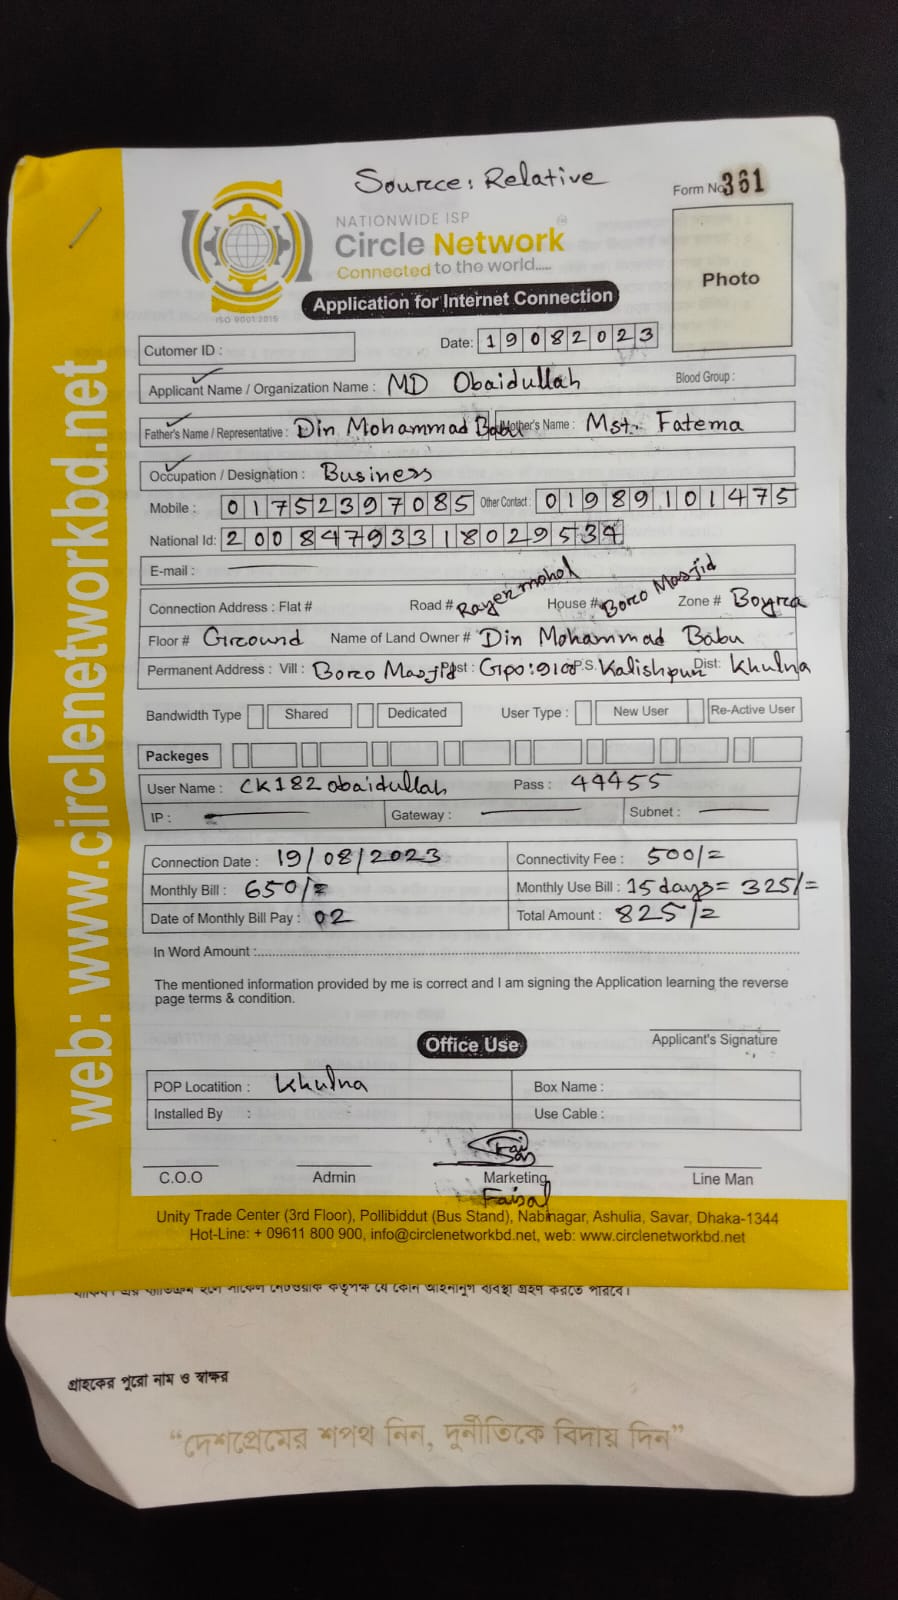 Source: Relative
Form No 361
NATIONWIDE ISP
Circle Network
Connected to the world.....
ISO 9001:2015
Application for Internet Connection
Photo
Cutomer ID :
Date: 19082023
Applicant Name / Organization Name : MD Obaidullah Blood Group :
Father's Name / Representative : Din Mohammad Babu Mother's Name : Mst. Fatema
Occupation / Designation : Business
Mobile : 01752397085 Other Contact : 01989101475
National Id: 20084793318029534
E-mail :
Connection Address : Flat # Road # Rayermohol House # Boro Masjid Zone # Boyra
Floor # Ground Name of Land Owner # Din Mohammad Babu
Permanent Address : Vill : Boro Masjid Post : GPO: P.S. Kalishpur Dist: Khulna
Bandwidth Type Shared Dedicated User Type : New User Re-Active User
Packeges
User Name : CK182obaidullah Pass : 49455
IP : Gateway : Subnet :
Connection Date : 19/08/2023 Connectivity Fee : 500/=
Monthly Bill : 650/= Monthly Use Bill : 15 days = 325/=
Date of Monthly Bill Pay : 02 Total Amount : 825/=
In Word Amount :
The mentioned information provided by me is correct and I am signing the Application learning the reverse
page terms & condition.
Applicant's Signature
Office Use
POP Locatition : Khulna Box Name :
Installed By : Use Cable :
C.O.O Admin Marketing Line Man
Faisal
Unity Trade Center (3rd Floor), Pollibiddut (Bus Stand), Nabinagar, Ashulia, Savar, Dhaka-1344
Hot-Line: + 09611 800 900, info@circlenetworkbd.net, web: www.circlenetworkbd.net
web: www.circlenetworkbd.net
গ্রাহকের পুরো নাম ও স্বাক্ষর
“দেশপ্রেমের শপথ নিন, দুর্নীতিকে বিদায় দিন”